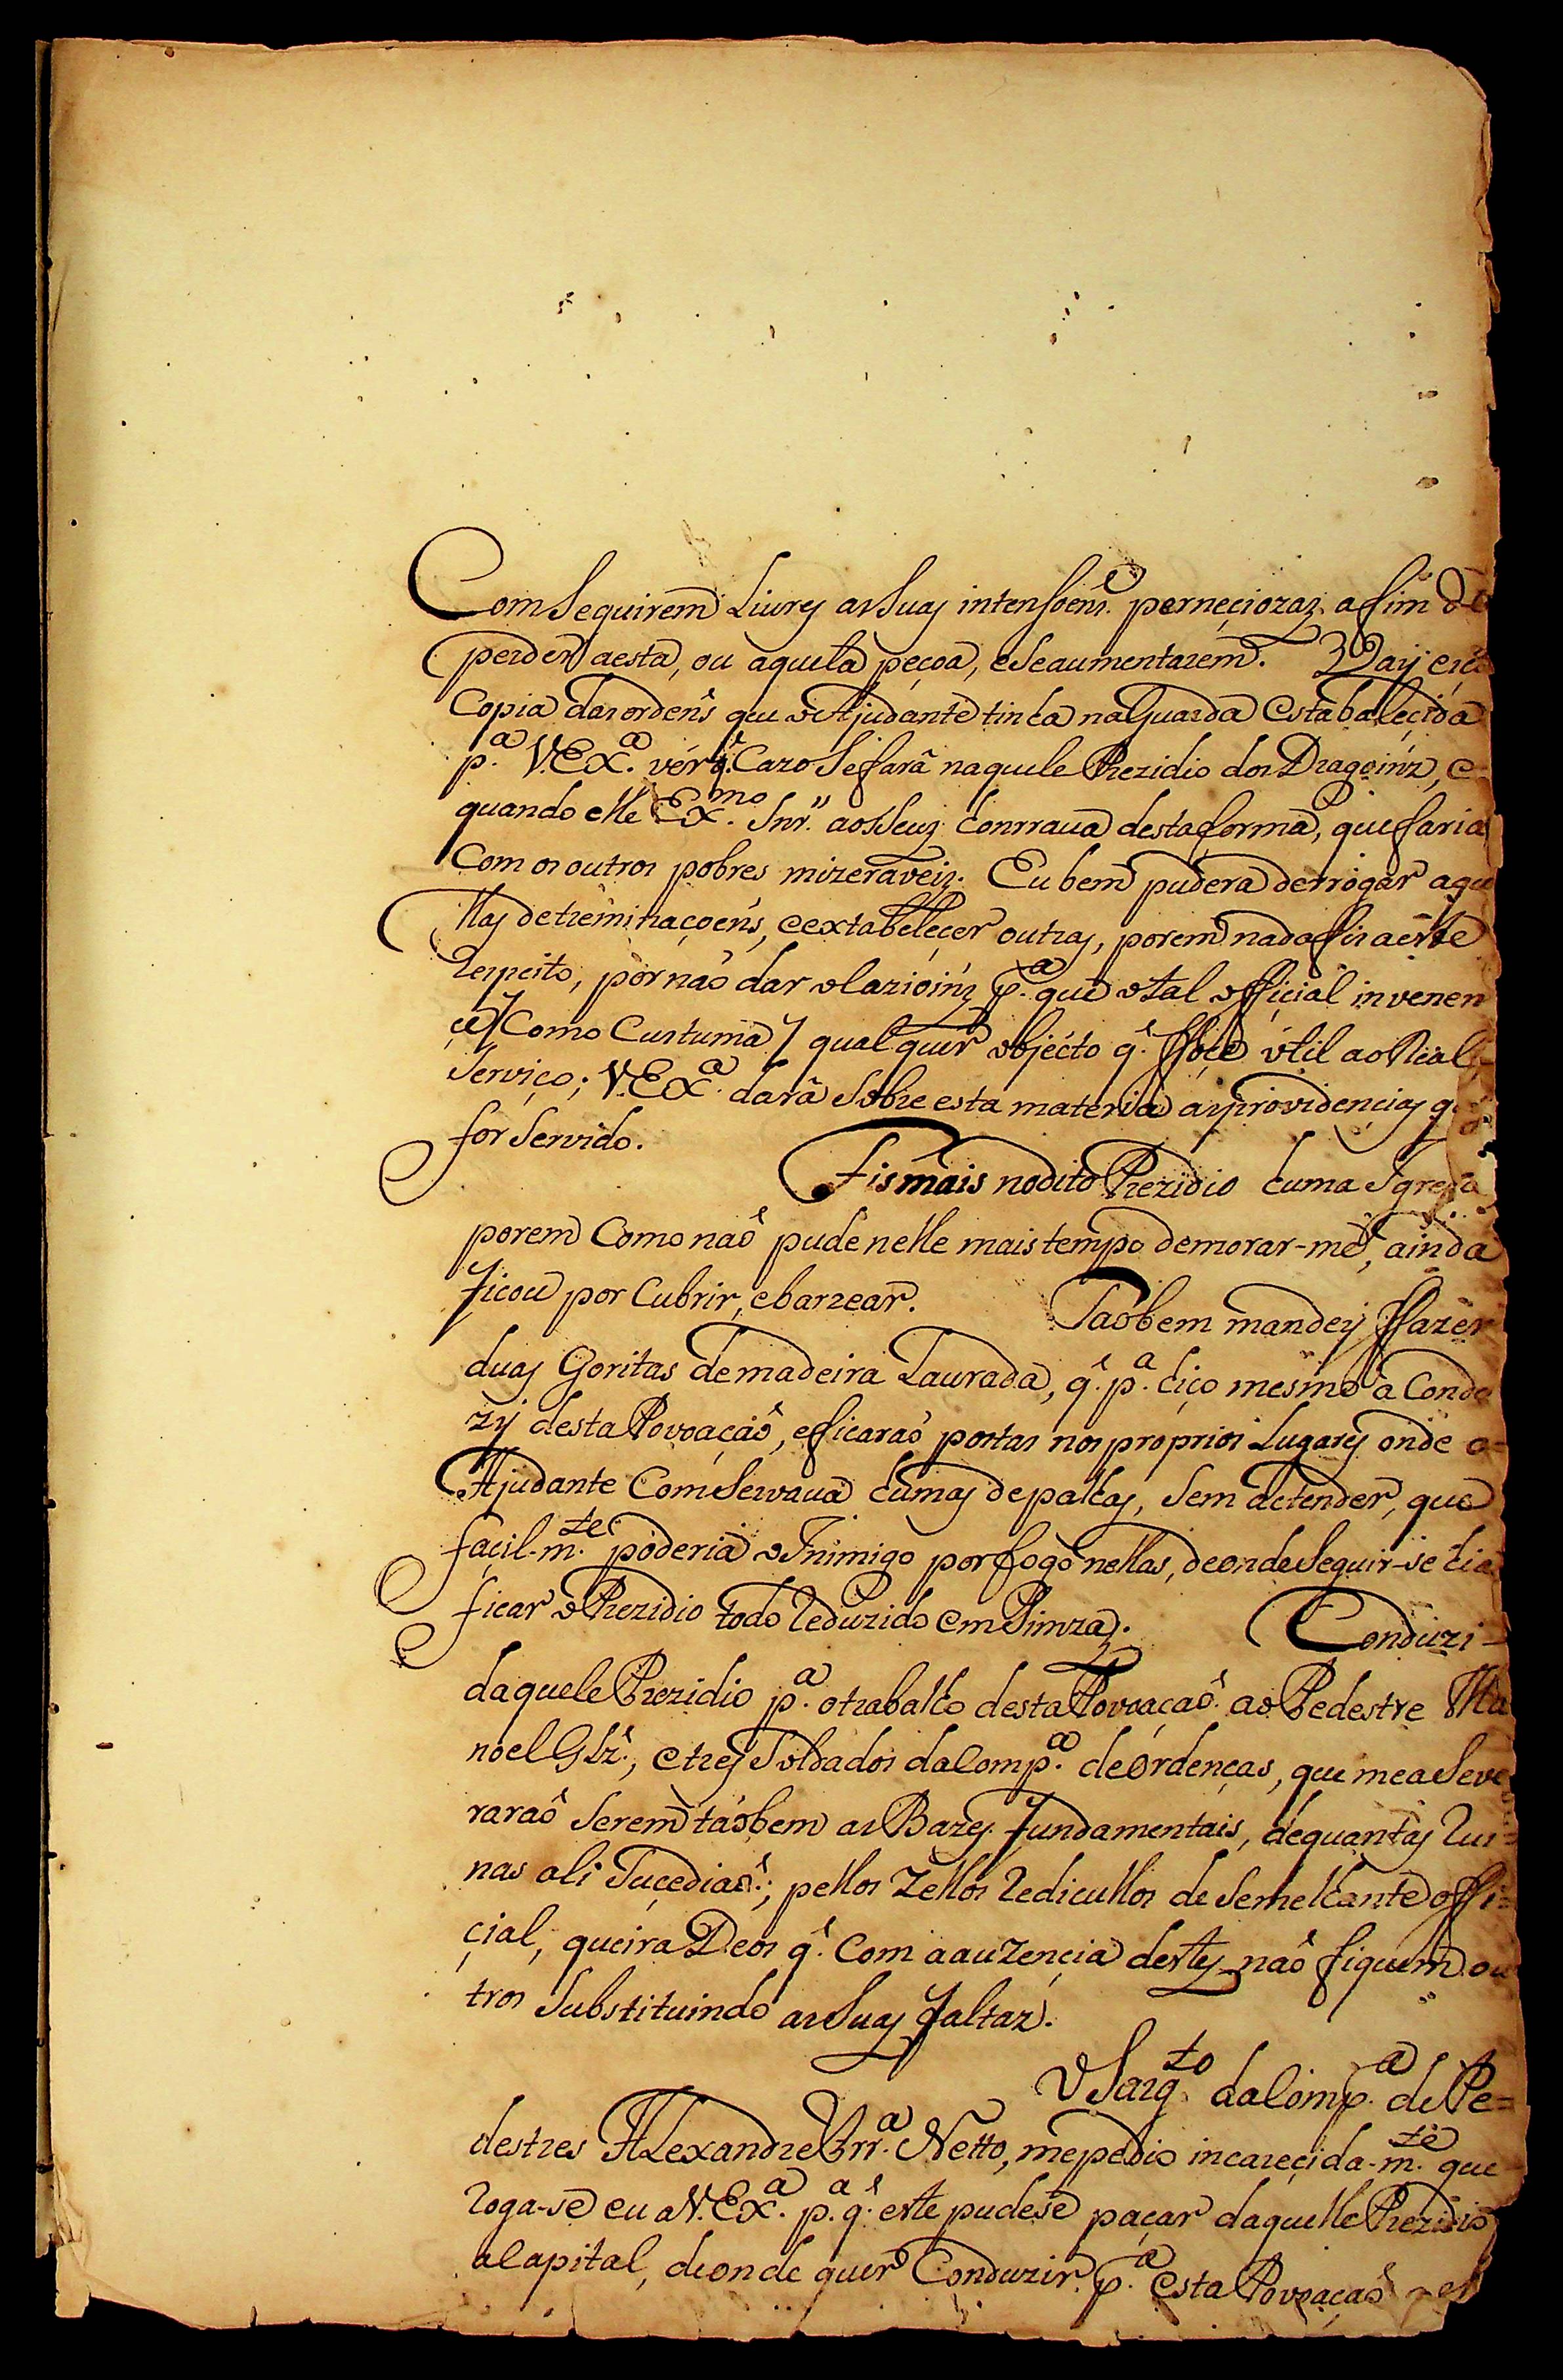 Comseguirem Livres as Suas intensoens perneçiozaz afim de
perder aesta, ou aquela peçoa, eseaumentarem. Vay e
Copia das ordens que o Ajudante tinha na Guarda Estabaleçida
p.ª V.Ex.ª vér q̃ Cazo Sefará naquele Prezidio dos Dragoinz, e
quando elle Ex.mo Snr. aosSeuz honrraua destaforma, quefaria
Com os outros pobres mizeraveiz. Eu bem pudera derrogar aque
llas detreminaçoens, eextabeleçer outras, porem nadafis aeste
Respeito, por não dar olazioinz p.ª que o tal offiçial invenen
çe / Como Custuma / qual quer objecto q̃ ffoçe útil aoReal
Serviço; V.Ex.ª dará Sobre esta materia asprovidençias q̃
for Servido.
Fis mais nodito Prezidio huma Igreja
porem Como naõ pude nelle mais tempo demorar-me, ainda
ficou por Cubrir, ebarrear. Taõbem mandey ffazer
duas Goritas demadeira Laurada, q̃ p.ª hiço mesmo a Condu
zy desta Povoaçaõ, efficaraõ postas nos proprios Lugares onde o=
Ajudante ComServaua humas depalhas, Sem Atender, que
façil-m.te poderia o Inimigo por fogo nellas, deondeSeguir-se hia
ficar o Prezidio todo Reduzido em Simzaz. Conduzi-
daquele Prezidio p.ª otrabalho desta Povoaçaõ ao Pedestre Ma
noel Glz̃, etres Soldados daComp.ª deOrdenças, que meaSeve
raraõ Serem taõbem as Bazes fundamentais, dequantas Rui=
nas ali Suçediaõ; pellos Zellos Redicullos de Semelhante offi=
çial, queira Deos q̃ Com aauzençia destes naõ fiquem ou
tros Substituindo as Suas faltaz.
O Sarg.to daComp.ª de Pe=
destres Alexandre Frr.ª Netto, mepedio incareçida-m.te que
Roga-se eu a V.Ex.ª p.ª q̃ este pudese paçar daquelle Prezidio
aCapital, deonde quer Conduzir p.ª esta Povoaçaõ